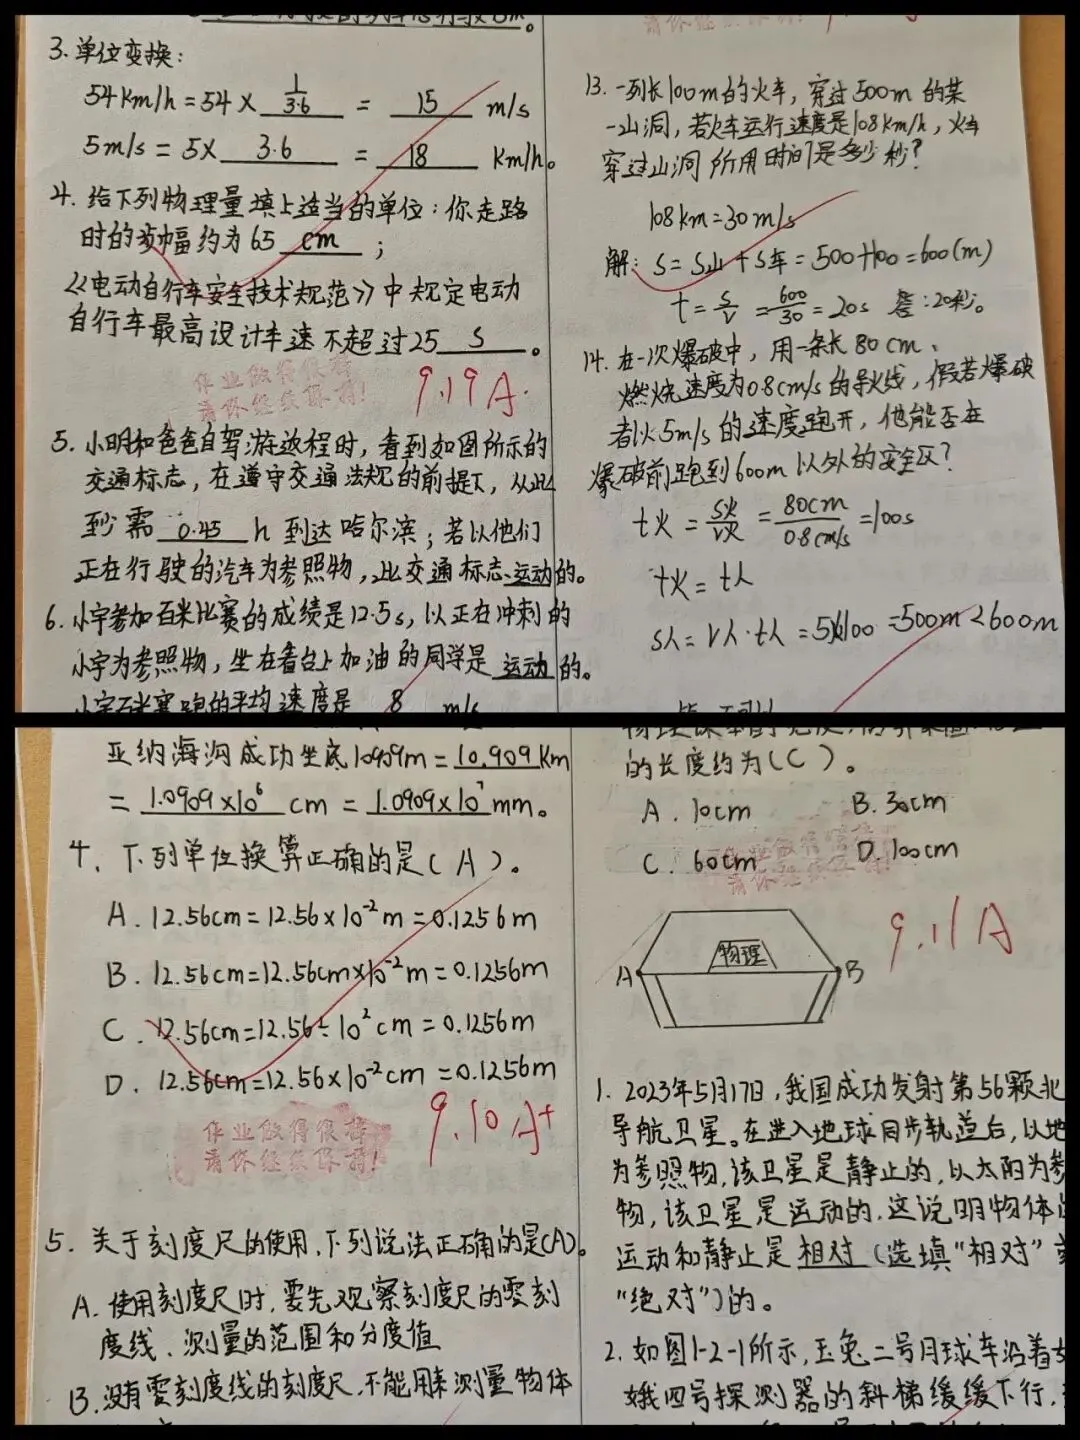 3. 单位变换:
54km/h = 54 × 1/3.6 = 15 m/s
5m/s = 5× 3.6 = 18 km/h。
4. 给下列物理量填上适当的单位:你走路
时的步幅约为65 cm ;
《电动自行车安全技术规范》中规定电动
自行车最高设计车速不超过25 s 。
作业做得很棒
请你继续保持!
9.19 A
5. 小明和爸爸自驾游返程时,看到如图所示的
交通标志,在遵守交通法规的前提下,从此
到 需 0.45 h 到达哈尔滨;若以他们
正在行驶的汽车为参照物,此交通标志运动的。
6. 小宇参加百米比赛的成绩是12.5s,以正在冲刺的
小宇为参照物,坐在看台上加油的同学是 运动 的。
小宇百米赛跑的平均速度是 8 m/s
13. 一列长100m的火车,穿过500m的某
一山洞,若火车运行速度是108km/h,火车
穿过山洞所用时间是多少秒?
108km=30m/s
解: s = s山 + s车 = 500+100 = 600(m)
t = s/v = 600/30 = 20s 答:20秒。
14. 在一次爆破中,用一条长80cm、
燃烧速度为0.8cm/s的导火线,假若爆破
者以5m/s的速度跑开,他能否在
爆破前跑到600m以外的安全区?
t火 = s火/v火 = 80cm/0.8cm/s =100s
t火 = t人
s人 = v人·t人 = 5×100 =500m<600m
亚纳海沟成功坐底10909m = 10.909 km
= 1.0909×10⁶ cm = 1.0909×10⁷ mm。
4. 下列单位换算正确的是( A )。
A. 12.56cm = 12.56×10⁻²m = 0.1256m
B. 12.56cm=12.56cm×10⁻²m = 0.1256m
C. 12.56cm=12.56÷10²cm = 0.1256m
D. 12.56cm=12.56×10⁻²cm = 0.1256m
作业做得很棒
请你继续保持!
9.10 A+
5. 关于刻度尺的使用,下列说法正确的是(A)。
A. 使用刻度尺时,要先观察刻度尺的零刻
度线、测量的范围和分度值
B. 没有零刻度线的刻度尺,不能用来测量物体
的长度约为( C )。
A. 10cm B. 30cm
C. 60cm D. 100cm
请你继续保持!
9.11 A
物理
A B
1. 2023年5月17日,我国成功发射第56颗北
导航卫星。在进入地球同步轨道后,以地
为参照物,该卫星是静止的,以太阳为参
物,该卫星是运动的,这说明物体的
运动和静止是 相对 (选填"相对"或
"绝对")的。
2. 如图1-2-1所示,玉兔二号月球车沿着
娥四号探测器的斜梯缓缓下行,